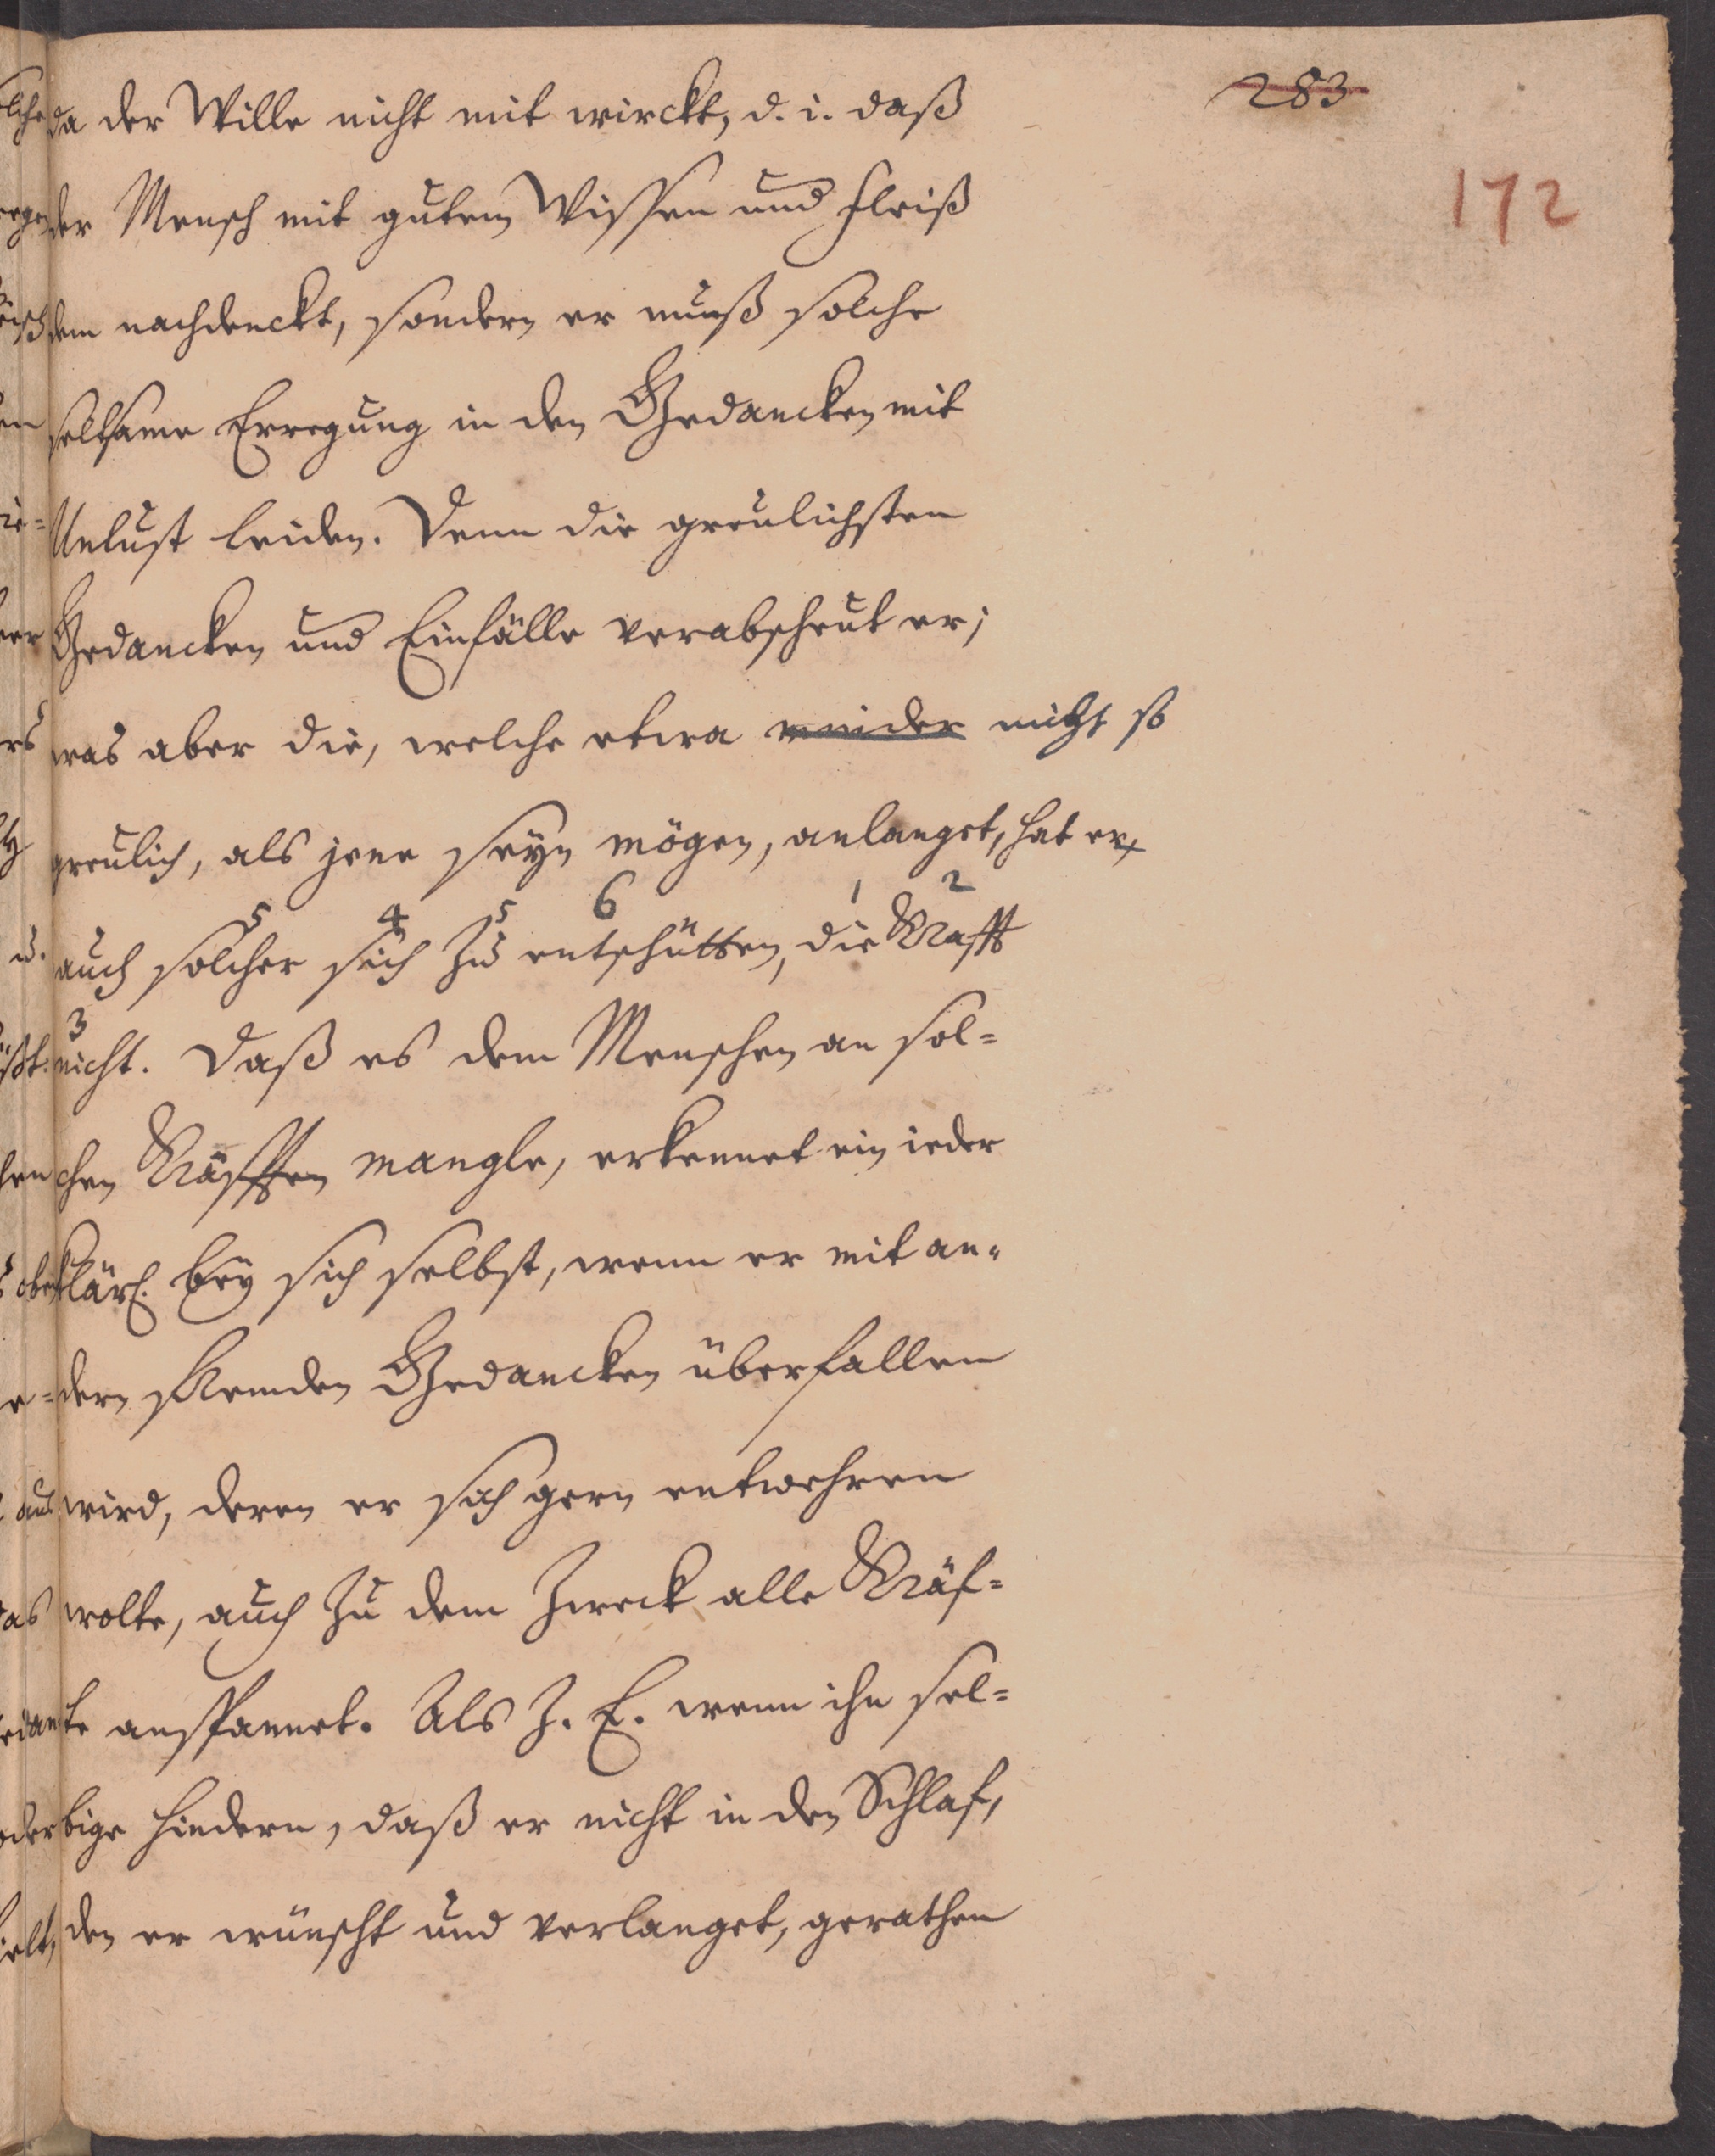 283
172
da der Wille nicht mit wirckt, d. i. daß
der Mensch mit gutem Wissen und Fleiß
dem nachdenckt, sondern er muß solche
seltsame Erregung in den Gedancken mit
Unlust leiden. Denn die greulichsten
Gedancken und Einfälle verabscheut er;
was aber die, welche etwa minder nicht so
greulich, als jene seyn mögen, anlanget, hat er
5 4 5 6 1 2
auch solcher sich zu entschütten, die Krafft
3
nicht. Daß es dem Menschen an sol-
chen Kräfften mangle, erkennet ein ieder
klärl. bey sich selbst, wenn er mit an-
dern fremden Gedancken überfallen
wird, deren er sich gern entwehren
wolte, auch zu dem Zweck alle Kräf-
te anspannet. Als z. E. wenn ihn sel-
bige hindern, daß er nicht in den Schlaf,
den er wünscht und verlanget, gerathen